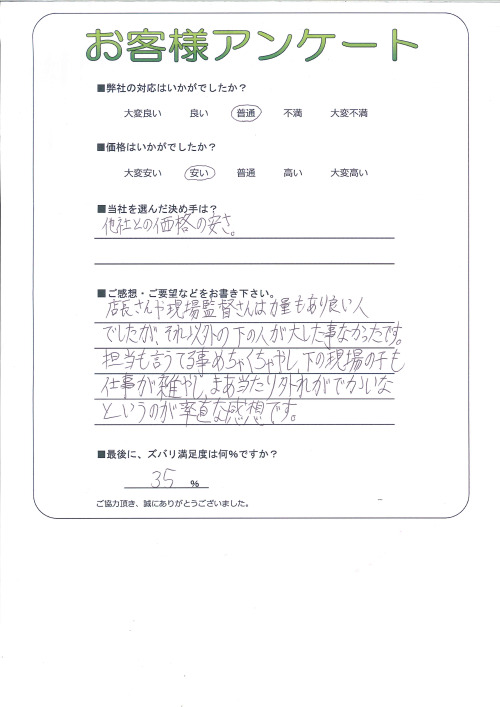 お客様アンケート
■弊社の対応はいかがでしたか？
大変良い 良い 普通 不満 大変不満
■価格はいかがでしたか？
大変安い 安い 普通 高い 大変高い
■当社を選んだ決め手は？
他社との価格の安さ。
■ご感想・ご要望などをお書き下さい。
店長さんや現場監督さんは力量もあり良い人
でしたが、それ以外の下の人が大した事なかったです。
担当も言うてる事めちゃくちゃやし、下の現場の子も
仕事が雑やし、まあ当たり外れがでかいな
というのが率直な感想です。
■最後に、ズバリ満足度は何%ですか？
35 %
ご協力頂き、誠にありがとうございました。